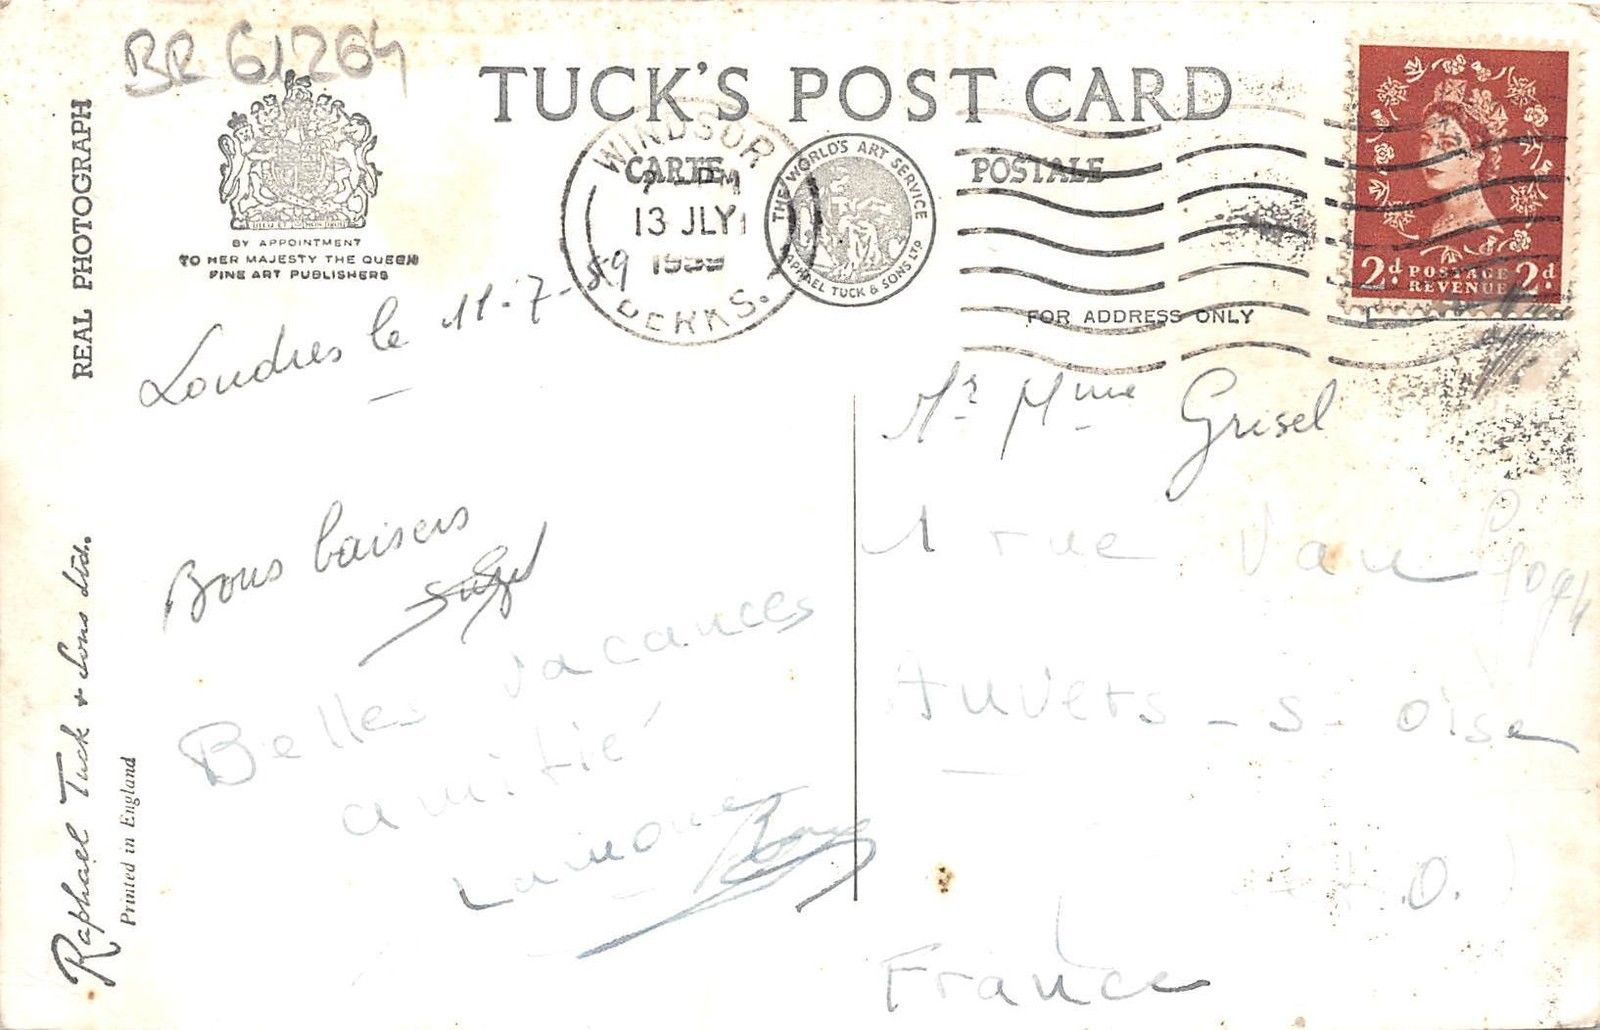 BR 61264
TUCK'S POST CARD
CARTE POSTALE
REAL PHOTOGRAPH
BY APPOINTMENT
TO HER MAJESTY THE QUEEN
FINE ART PUBLISHERS
WINDSOR
PM
13 JLY
1959
BERKS.
THE WORLD'S ART SERVICE
RAPHAEL TUCK & SONS LTD
2d POSTAGE REVENUE 2d
FOR ADDRESS ONLY
Londres le 11-7-59
Bons baisers
Belles vacances
amitié
Mr Mme Grisel
1 rue Van Gogh
Auvers-s-Oise
France
Raphael Tuck & Sons Ltd.
Printed in England